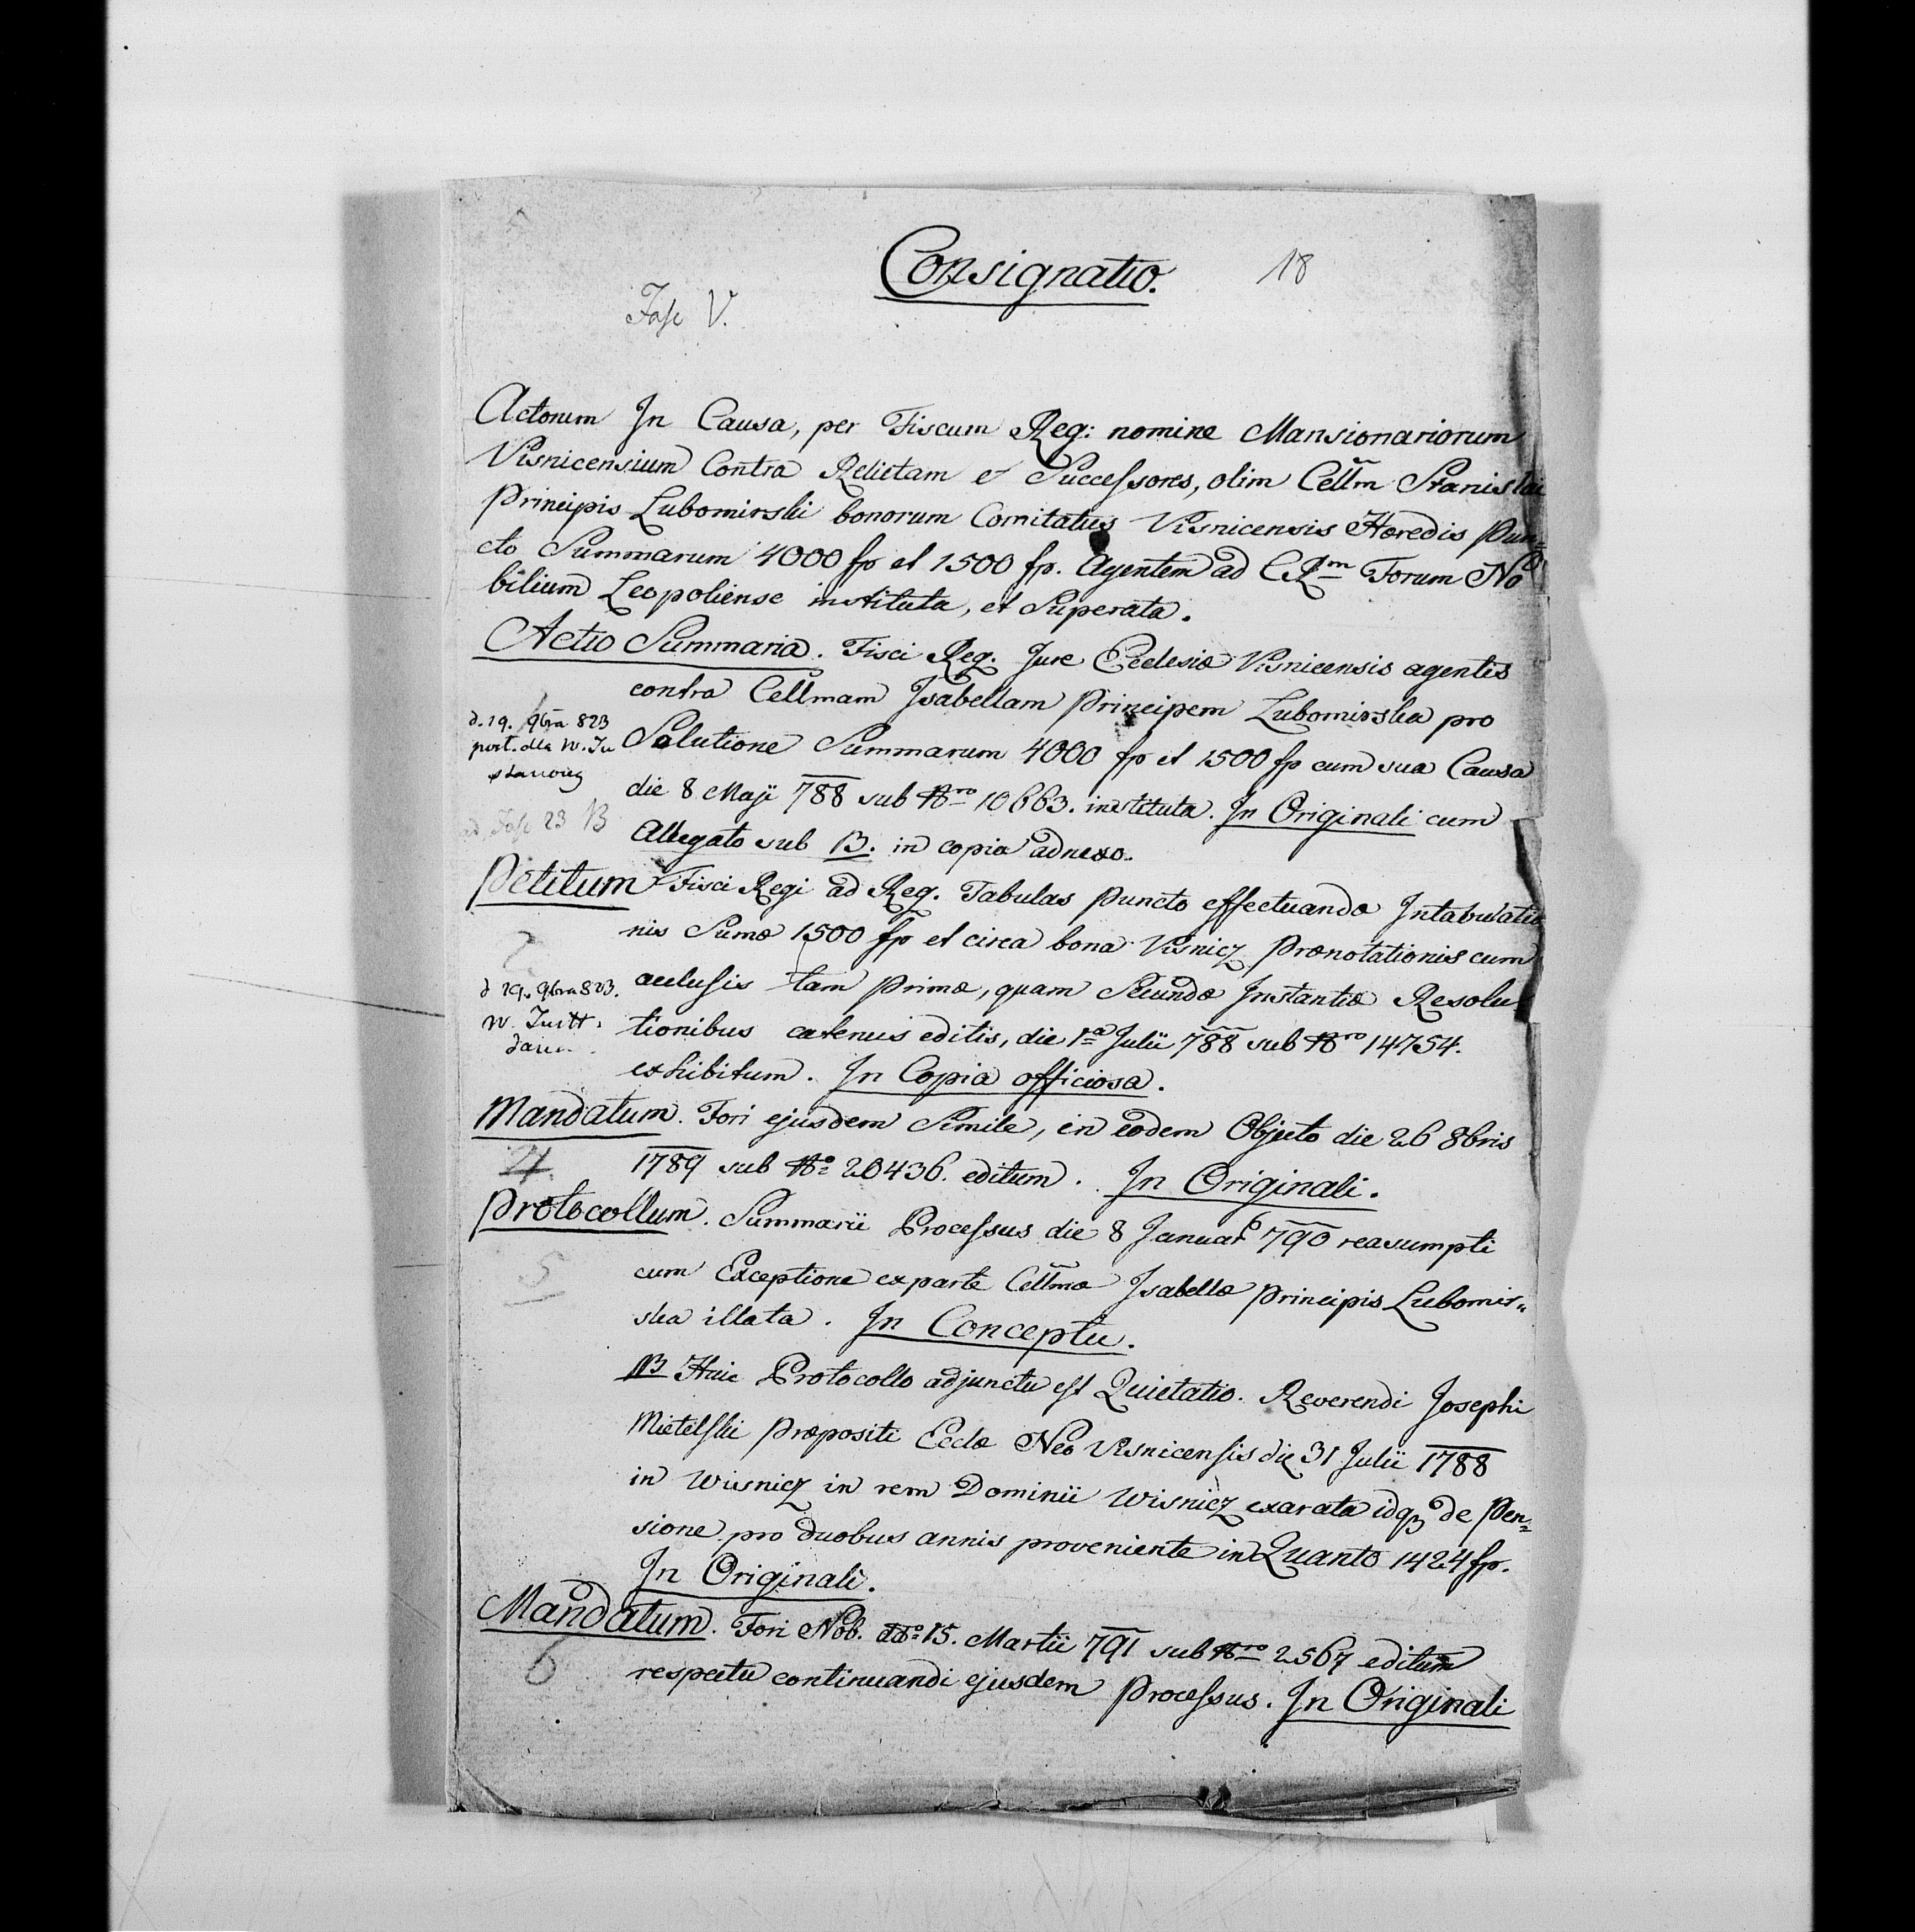 Consignatio.
18
Fasc V.
Actorum In Causa, per Fiscum Reg: nomine Mansionariorum
Visnicensium Contra Relictam et Successores, olim Cellm Stanislai
Principis Lubomirski bonorum Comitatus Visnicensis Hæredis Pun-
cto Summarum 4000 fp et 1500 fp. Agentem ad CRm Forum No
bilium Leopoliense instituta, et Superata.
Actio Summaria. Fisci Reg. Jure Ecclesiæ Visnicensis agentis
contra Cellmam Isabellam Principem Lubomirska pro
d. 19. 9bra 823
Solutione Summarum 4000 fp et 1500 fp cum sua Causa
die 8 Maji 788 sub Nro 10663. instituta. In Originali cum
ad Fasc 23 B
Allegato sub B. in copia adnexo.
Petitum Fisci Regi ad Reg. Tabulas Puncto effectuandæ Intabulatio
nis Sumæ 1500 fp et circa bona Visnicz Prænotationis cum
acclusis tam Primæ, quam Secundæ Instantiæ Resolu
d 19. 9bra 823.
tionibus eatenus editis, die 1a Julii 788 sub Nro 14754.
exhibitum. In Copia officiosa.
Mandatum. Fori ejusdem Simile, in eodem Objecto die 26 8bris
4.
1789 sub No 20436. editum. In Originali.
Protocollum. Summarii Processus die 8 Januar 790 reasumpti
5
cum Exceptione exparte Cellmæ Isabellæ Principis Lubomir-
ska illata. In Conceptu.
NB Huic Protocollo adjuncta est Quietatio. Reverendi Josephi
Mietelski Præpositi Ecclæ Neo Visnicensis die 31 Julii 1788
in Wisnicz in rem Dominii Wisnicz exarata idq3 de Pen-
sione pro duobus annis proveniente in Quanto 1424 fp.
In Originali.
Mandatum. Fori Nob. ddo 15. Martii 791 sub Nro 2567 editum
6
respectu continuandi ejusdem Processus. In Originali